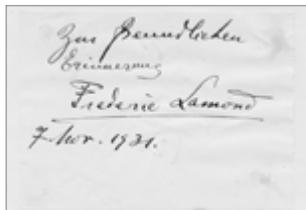 Zur freundlichen
Erinnerung
Frederic Lamond
7 Nov. 1931.